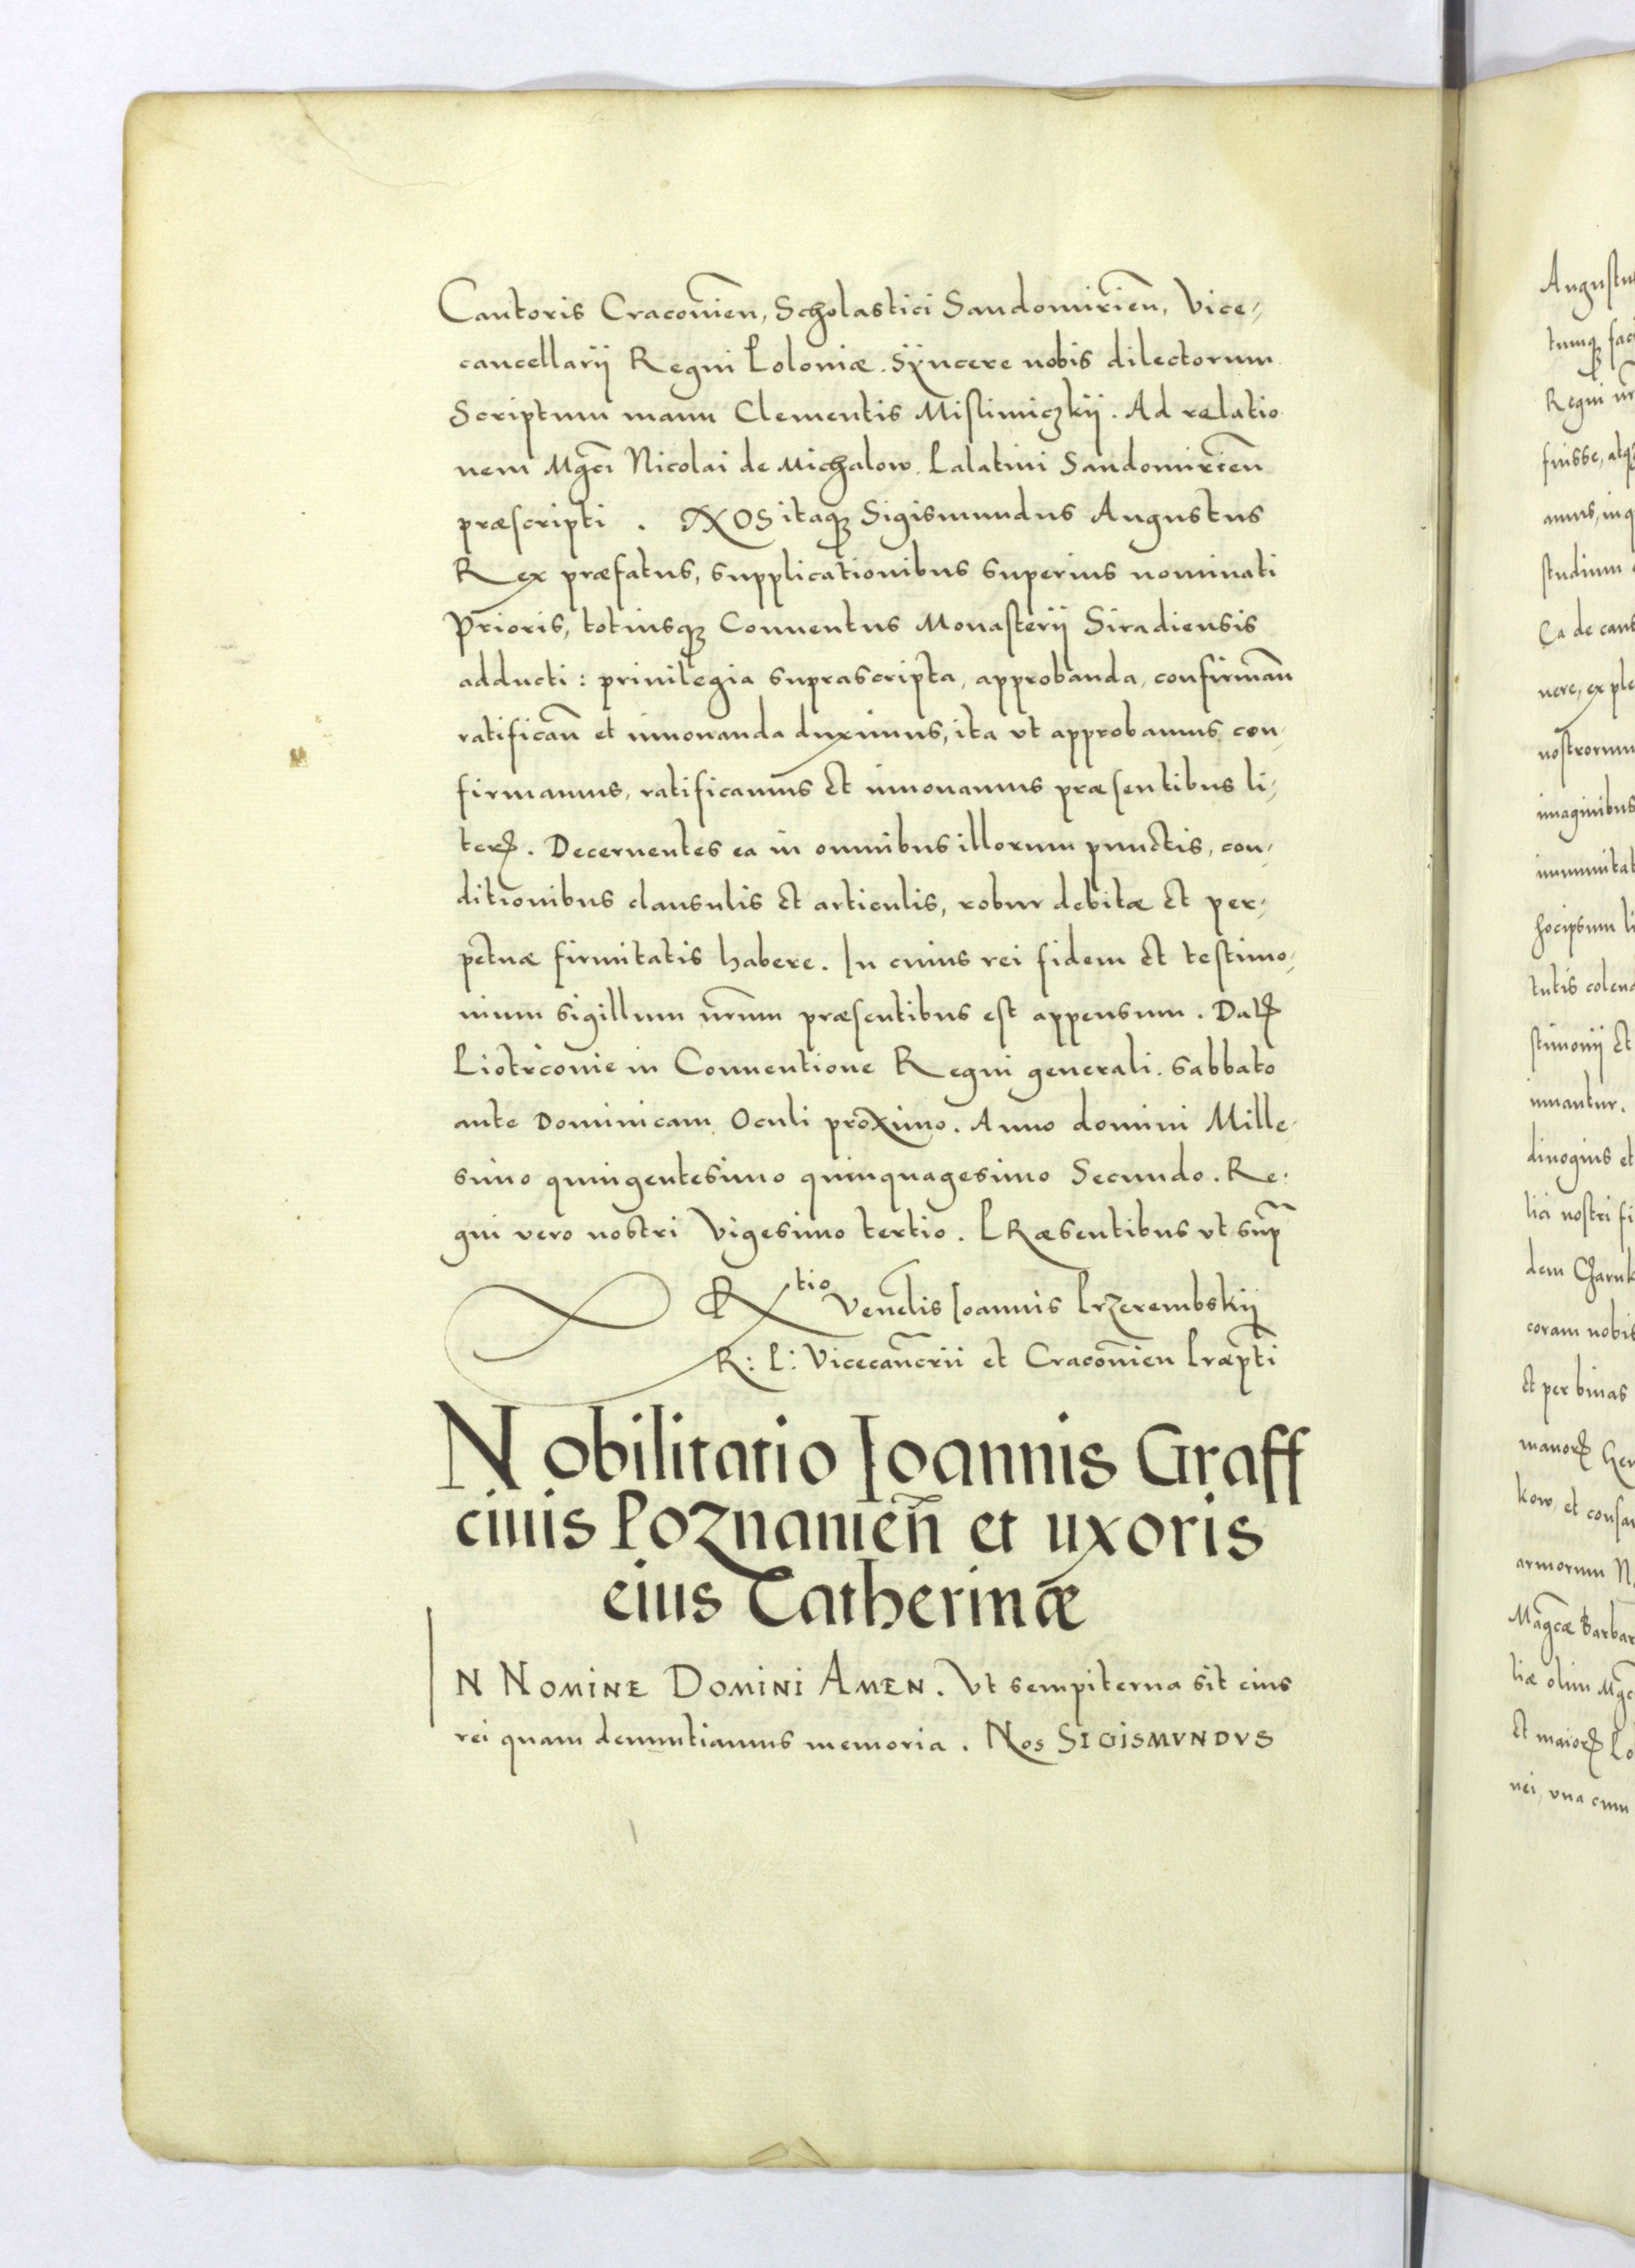 Cantoris Cracouien̄, Scholastici Sandomirien̄, Vice-
cancellarÿ Regni Poloniæ. Sÿncere nobis dilectorum
Scriptum manu Clementis Mislimiczkÿ. Ad relatio
nem Mgc̄i Nicolai de Michalow. Palatini Sandomirien̄
præscripti. NOS itaqȝ Sigismundus Augustus
Rex præfatus, supplicationibus superius nominati
Prioris, totiusqȝ Conuentus Monasterÿ Siradiensis
adducti: priuilegia suprascripta, approbanda, confirman̄
ratifican̄ et innouanda duximus, ita vt approbamus con-
firmamus, ratificamus et innouamus præsentibus li-
terꝭ. Decernentes ea in omnibus illorum punctis, con-
ditionibus clausulis et articulis, robur debitæ et per-
petuæ firmitatis habere. In cuius rei fidem et testimo-
nium sigillum nr̄um præsentibus est appensum. Datꝭ
Piotrcouie in Conuentione Regni generali. Sabbato
ante Dominicam Oculi proximo. Anno domini Mille-
simo quingentesimo quinquagesimo Secundo. Re-
gni vero nostri Vigesimo tertio. PRæsentibus vt sup̄
Rtio Venēlis Ioannis Przerembskÿ
R: P: Vicecan̄crii et Cracouien̄ Præpt̄i
Nobilitatio Ioannis Graff
ciuis Poznanien̄ et uxoris
eius Catherinæ
IN NOMINE DOMINI AMEN. Vt sempiterna sit eius
rei quam denuntiamus memoria. Nos SIGISMVNDVS
Augustu
tumqȝ fac
Regni nr̄
fuisse, atqȝ
amus, inq
studium
Ea de caus
uere, ex ple
nostrorum
imaginibus
immunitat
hocipsum li
tutis colend
stimonÿ et
inuantur.
diuogius et
lici nostri fi
dem Charnk
coram nobis
et per binas
manorꝭ Hen
kow, et consan
armorum N
Magc̄æ Barbar
liæ olim Mgc̄
et maiorꝭ Po
nei, vna cum